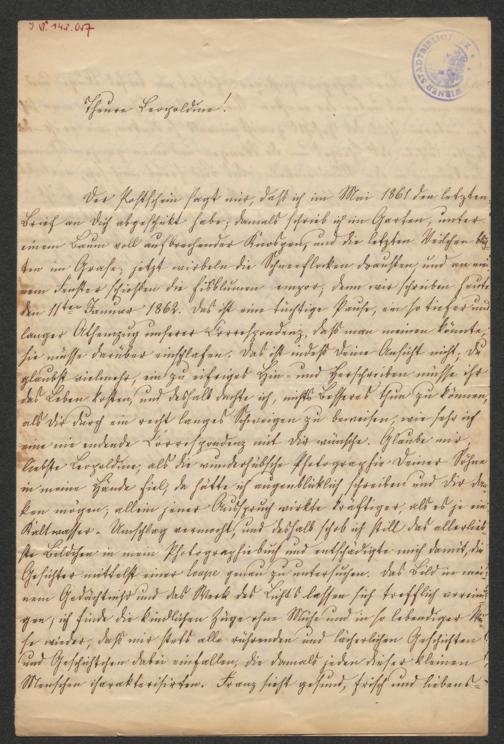 WIENER STADTBIBLIOTHEK
Theure Leopoldine!
Der Postschein sagt mir, daß ich im Mai 1861 den letzten
Brief an Dich abgeschickt habe; damals schrieb ich im Garten, unter
einem Baum voll aufbrechender Knospen, und die letzten Veilchen
ten im Grase; jetzt wirbeln die Schneeflocken draußen, und an mei
nem Fenster schießen die Eisblumen empor, denn wir schreiben heute
den 11ten Januar 1862. Das ist eine tüchtige Pause, ein so tiefer und
langer Athemzug unserer Correspondenz, daß man meinen könnte,
sie müsse darüber einschlafen. Das ist indeß Deine Ansicht nicht; Du
glaubst vielmehr, ein zu eifriges Hin- und Herschreiben müsse ihr
das Leben kosten, und deshalb dachte ich, nichts Besseres thun zu können,
als Dir durch ein recht langes Schweigen zu beweisen, wie sehr ich
eine nie endende Correspondenz mit Dir wünsche. Glaube mir,
liebste Leopoldine, als die wunderhübsche Photographie Deiner Söhne
in meine Hände fiel, da hätte ich augenblicklich schreiben und Dir dan
ken mögen; allein jener Ausspruch wirkte kräftiger, als es je ein
Kaltwasser-Umschlag vermocht, und deshalb schob ich still das allerlieb
ste Bildchen in mein Photographiebuch und entschädigte mich damit, die
Gesichter mittelst einer loupe genau zu untersuchen. Das Bild in mei
nem Gedächtniß und das Werk des Lichts lassen sich trefflich vereini
gen; ich finde die kindlichen Züge ohne Mühe und in so lebendiger Wei
se wieder, daß mir stets alle rührenden und lächerlichen Geschichten
und Geschichtchen dabei einfallen, die damals jeden dieser kleinen
Menschen charakterisirten. Franz sieht gesund, frisch und liebens-